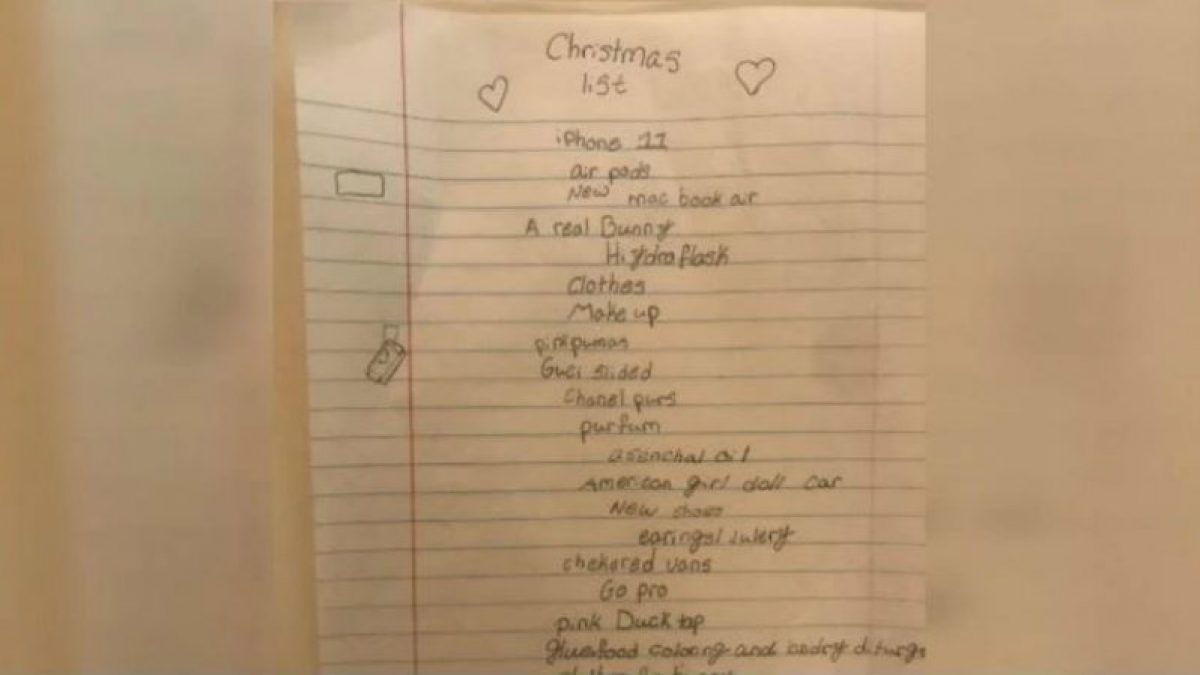 Christmas
list
iPhone 11
air pods
New mac book air
A real Bunny
Hydroflask
Clothes
Make up
pink pumas
Guci slided
Chanel purs
purfum
asenchal oil
American girl doll car
New shoes
earings/ julery
chekered vans
Go pro
pink Duck tap
glue food coloring and